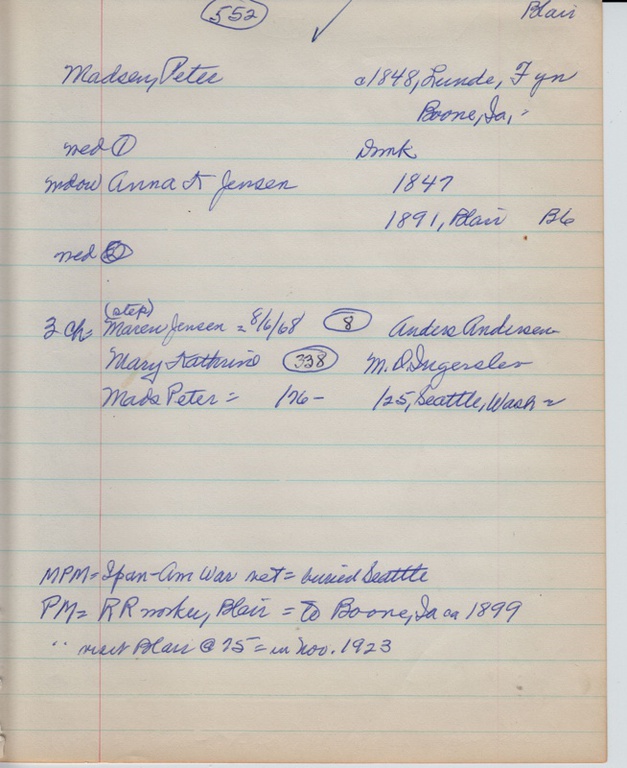 552 Blair
Madsen, Peter c1848, Lunde, Fyn
Boone, Ia, -
med ① Dmk
Anna K Jensen 1847
1891, Blair Bb
med ②
(step)
3 ch = Maren Jensen = 8/6/68 8 Anders Andersen
Mary Kathrine 338 M. O. Ingerslev
Mads Peter = /76 - /25, Seattle, Wash
MPM = Span-Am War vet = buried Seattle
PM = RR worker, Blair = to Boone, Ia ca 1899
" visit Blair @ 75 = in Nov. 1923